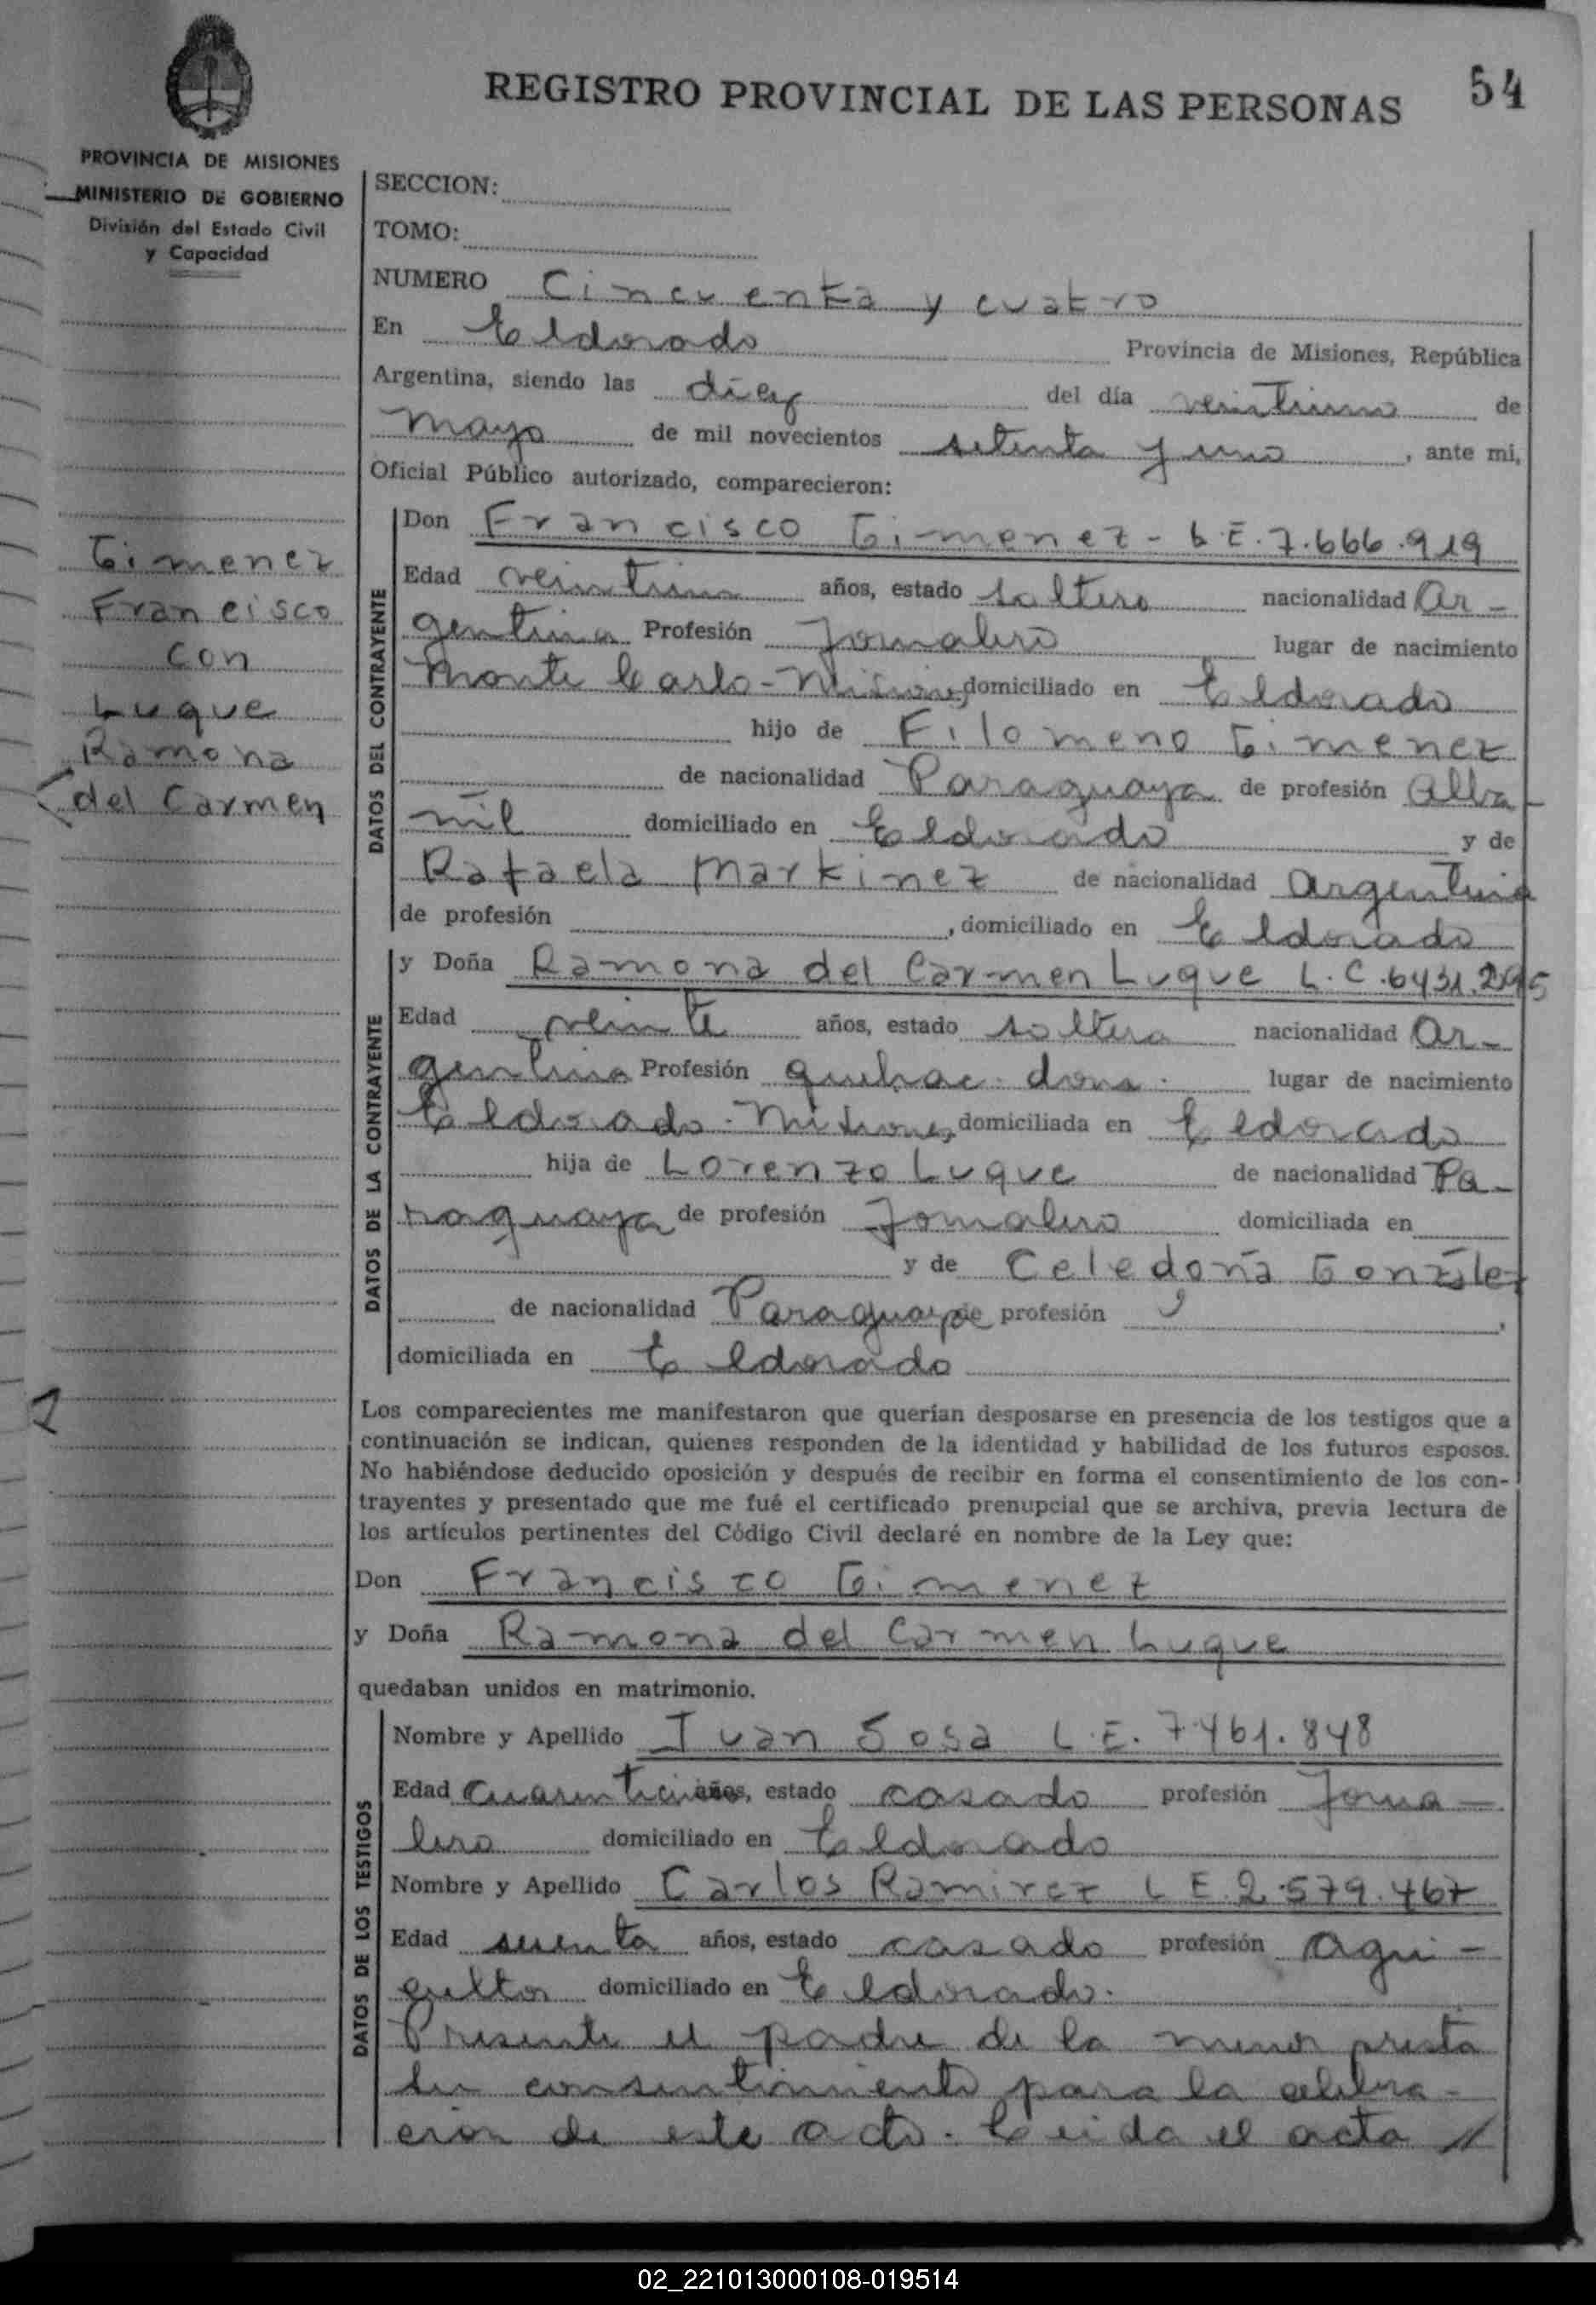 REGISTRO PROVINCIAL DE LAS PERSONAS 54
PROVINCIA DE MISIONES
MINISTERIO DE GOBIERNO
División del Estado Civil
y Capacidad
SECCION:
TOMO:
NUMERO Cincuenta y cuatro
En Eldorado Provincia de Misiones, República
Argentina, siendo las diez del día veintiuno de
mayo de mil novecientos setenta y uno, ante mi,
Oficial Público autorizado, comparecieron:
Gimenez
Francisco
con
Luque
Ramona
del Carmen
DATOS DEL CONTRAYENTE
Don Francisco Gimenez - L.E. 7.666.919
Edad veintiun años, estado soltero nacionalidad Ar-
gentina Profesión Jornalero lugar de nacimiento
Monte Carlo - Misiones, domiciliado en Eldorado
hijo de Filomeno Gimenez
de nacionalidad Paraguaya de profesión Alba-
ñil domiciliado en Eldorado y de
Rafaela Martinez de nacionalidad Argentina
de profesión , domiciliado en Eldorado
DATOS DE LA CONTRAYENTE
y Doña Ramona del Carmen Luque L.C. 6431.295
Edad veinte años, estado soltera nacionalidad Ar-
gentina Profesión quehac. dom. lugar de nacimiento
Eldorado - Misiones, domiciliada en Eldorado
hija de Lorenzo Luque de nacionalidad Pa-
raguaya de profesión Jornalero domiciliada en
y de Celedoña González
de nacionalidad Paraguaya de profesión ,
domiciliada en Eldorado
Los comparecientes me manifestaron que querían desposarse en presencia de los testigos que a
continuación se indican, quienes responden de la identidad y habilidad de los futuros esposos.
No habiéndose deducido oposición y después de recibir en forma el consentimiento de los con-
trayentes y presentado que me fué el certificado prenupcial que se archiva, previa lectura de
los artículos pertinentes del Código Civil declaré en nombre de la Ley que:
Don Francisco Gimenez
y Doña Ramona del Carmen Luque
quedaban unidos en matrimonio.
DATOS DE LOS TESTIGOS
Nombre y Apellido Juan Sosa L.E. 7.461.848
Edad años, estado casado profesión Jorna-
lero domiciliado en Eldorado
Nombre y Apellido Carlos Ramirez L E. 2.579.467
Edad años, estado casado profesión Agri-
cultor domiciliado en Eldorado.
Presente el padre de la menor presta
su consentimiento para la celebra-
ción de este acto. Leida el acta //
02_221013000108-019514